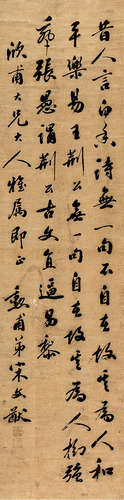 昔人言白香诗無一句不自在故其為人和
平樂易王荆公無一句自在故其為人拗強
乖張愚謂荆公古文直逼昌黎
欣甫大兄大人雅属即正
勲甫弟宋文猷